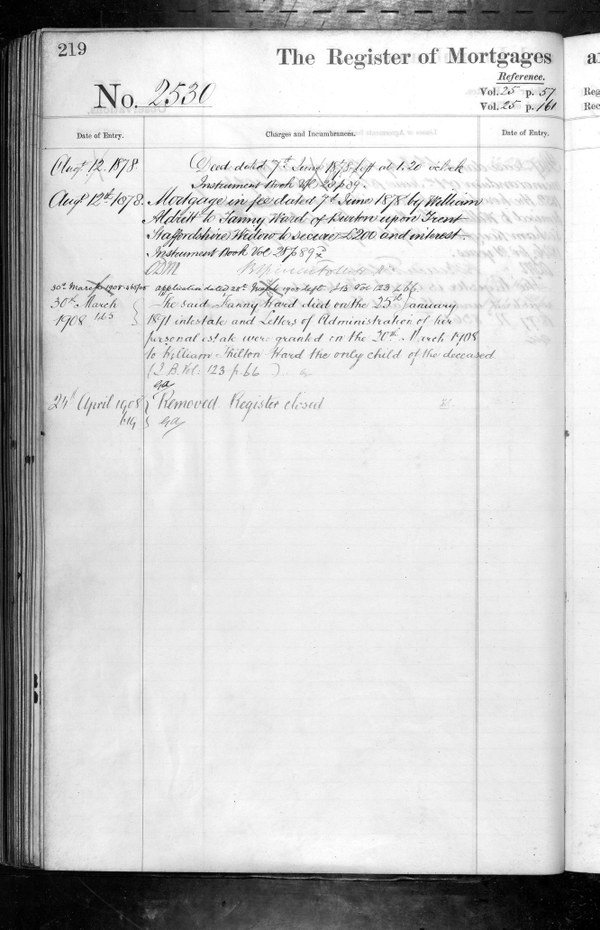 219
The Register of Mortgages
Reference.
No. 2530
Vol. 25 p. 57
Vol. 25 p. 161
Date of Entry.
Charges and Incumbrances.
Date of Entry.
Augt 12. 1878.
Deed dated 7th June 1878 left at 1.20 oclock
Instrument Book Vol 28 p 89.
Augt 12th 1878.
Mortgage in fee dated 7th June 1878 by William
Aldritt to Fanny Ward of Burton upon Trent
Staffordshire Widow to secure £200 and interest
Instrument Book Vol 28 p 89
30th March 1908
application dated 28th 1908 left I B Vol 123 p 66
30th March
1908 1.63
The said Fanny Ward died on the 25th January
intestate and Letters of Administration of her
personal estate were granted on the 20th March 1908
to William Hilton Ward the only child of the deceased
(I. B. Vol: 123 p 66)
24th April 1908
Removed Register closed